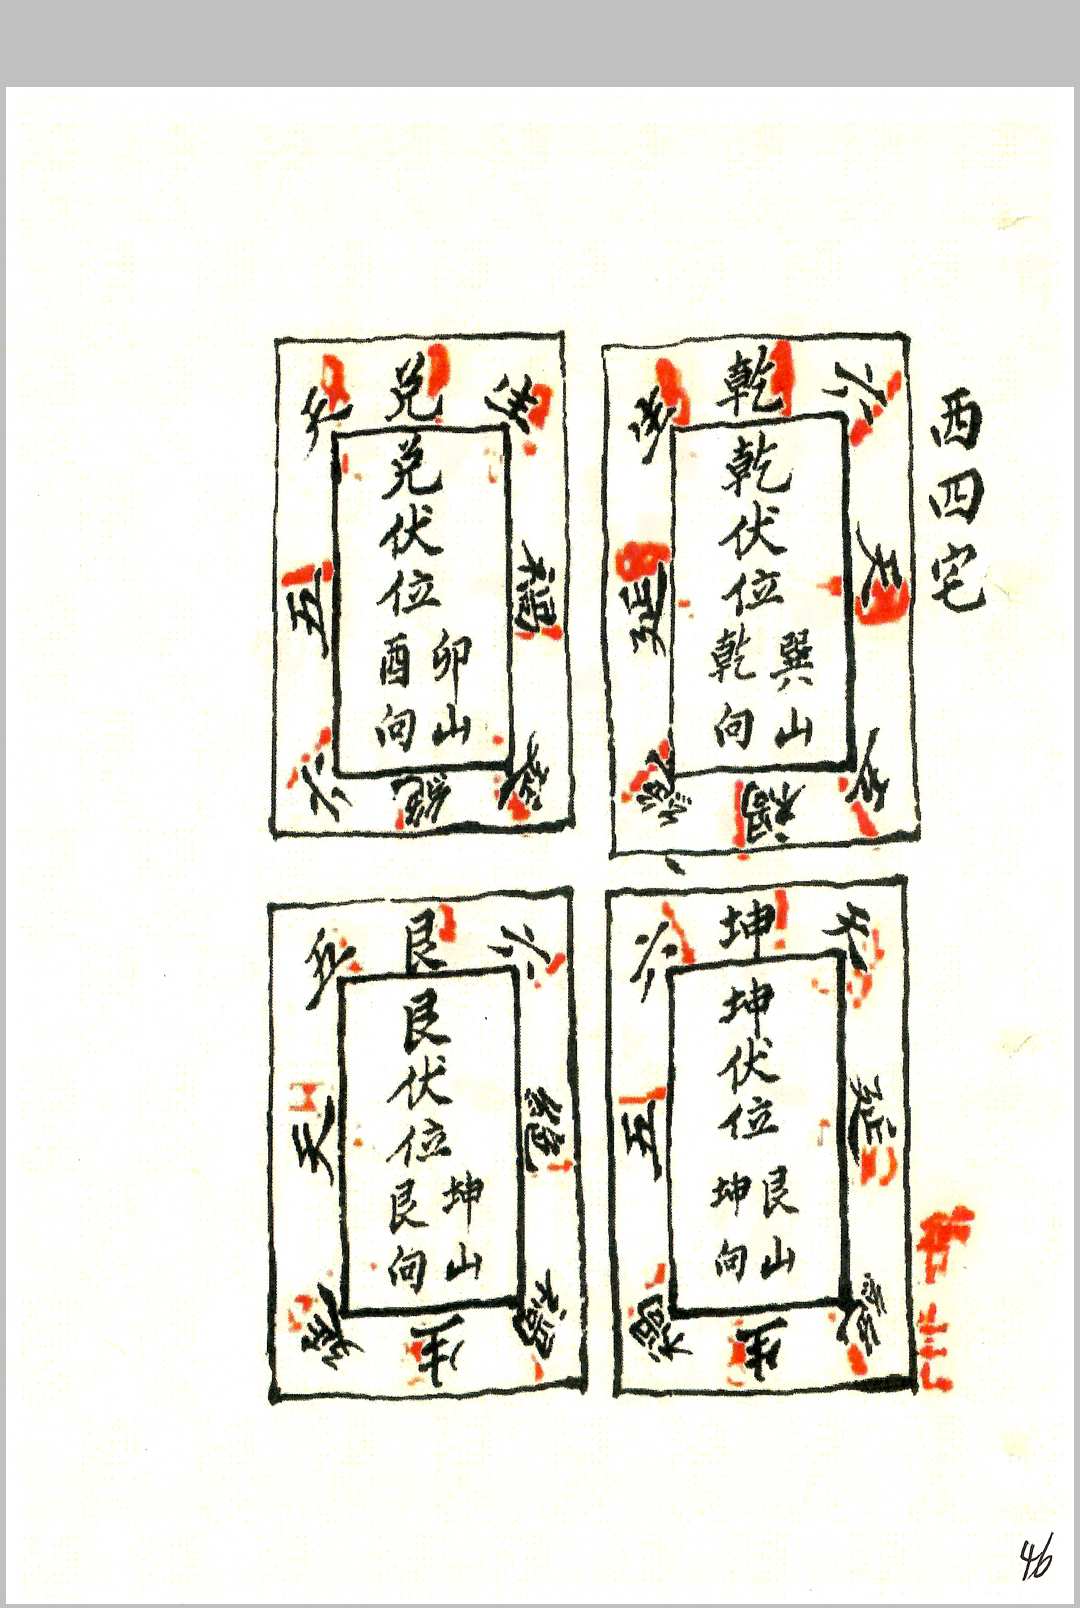 西四宅
乾
六
天
五
禍
絕
延
生
乾伏位
巽山
乾向
兌
生
禍
延
絕
六
五
天
兌伏位
卯山
酉向
坤
天
延
絕
生
禍
五
六
坤伏位
艮山
坤向
艮
六
絕
禍
生
延
天
五
艮伏位
坤山
艮向
46